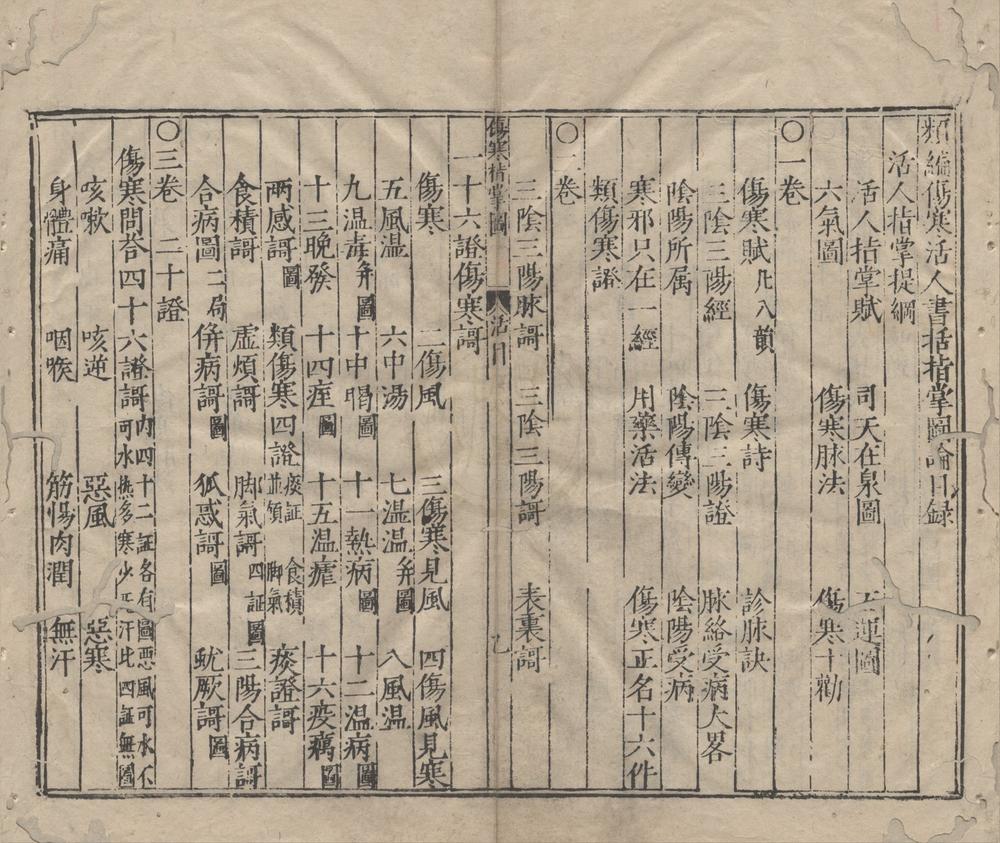 類編傷寒活人書括指掌圖論目録
活人指掌提綱
活人括掌賦 司天在泉圖 五運圖
六氣圖 傷寒脉法 傷寒十勸
〇一卷
傷寒賦 凡八韻 傷寒詩 診脉訣
三陰三陽經 三陰三陽證 脉絡受病大畧
陰陽所属 陰陽傳變 陰陽受病
寒邪只在一經 用藥活法 傷寒正名十六件
類傷寒證
〇二卷
三陰三陽脉謌 三陰三陽謌 表裏謌
傷寒指掌圖 活目 乙
一十六證傷寒謌
傷寒 二傷風 三傷寒見風 四傷風見寒
五風温 六中湯 七温温并圖 八風温
九温毒并圖 十中暍圖 十一熱病圖 十二温病圖
十三晚發 十四痓圖 十五温瘧 十六疫癘圖
兩感謌圖 類傷寒四證 痰証 食積 並煩 脚氣 痰證謌
食積謌 虚煩謌 脚氣謌 四証圖 三陽合病謌
合病圖二局 併病謌圖 狐惑謌圖 蚘厥謌圖
〇三卷 二十證
傷寒問荅四十六證謌 内四十二証各有圖惡風可水不可水 多寒少 汗比四証無圖
咳嗽 咳逆 惡風 惡寒
身體痛 咽喉 筋惕肉潤 無汗